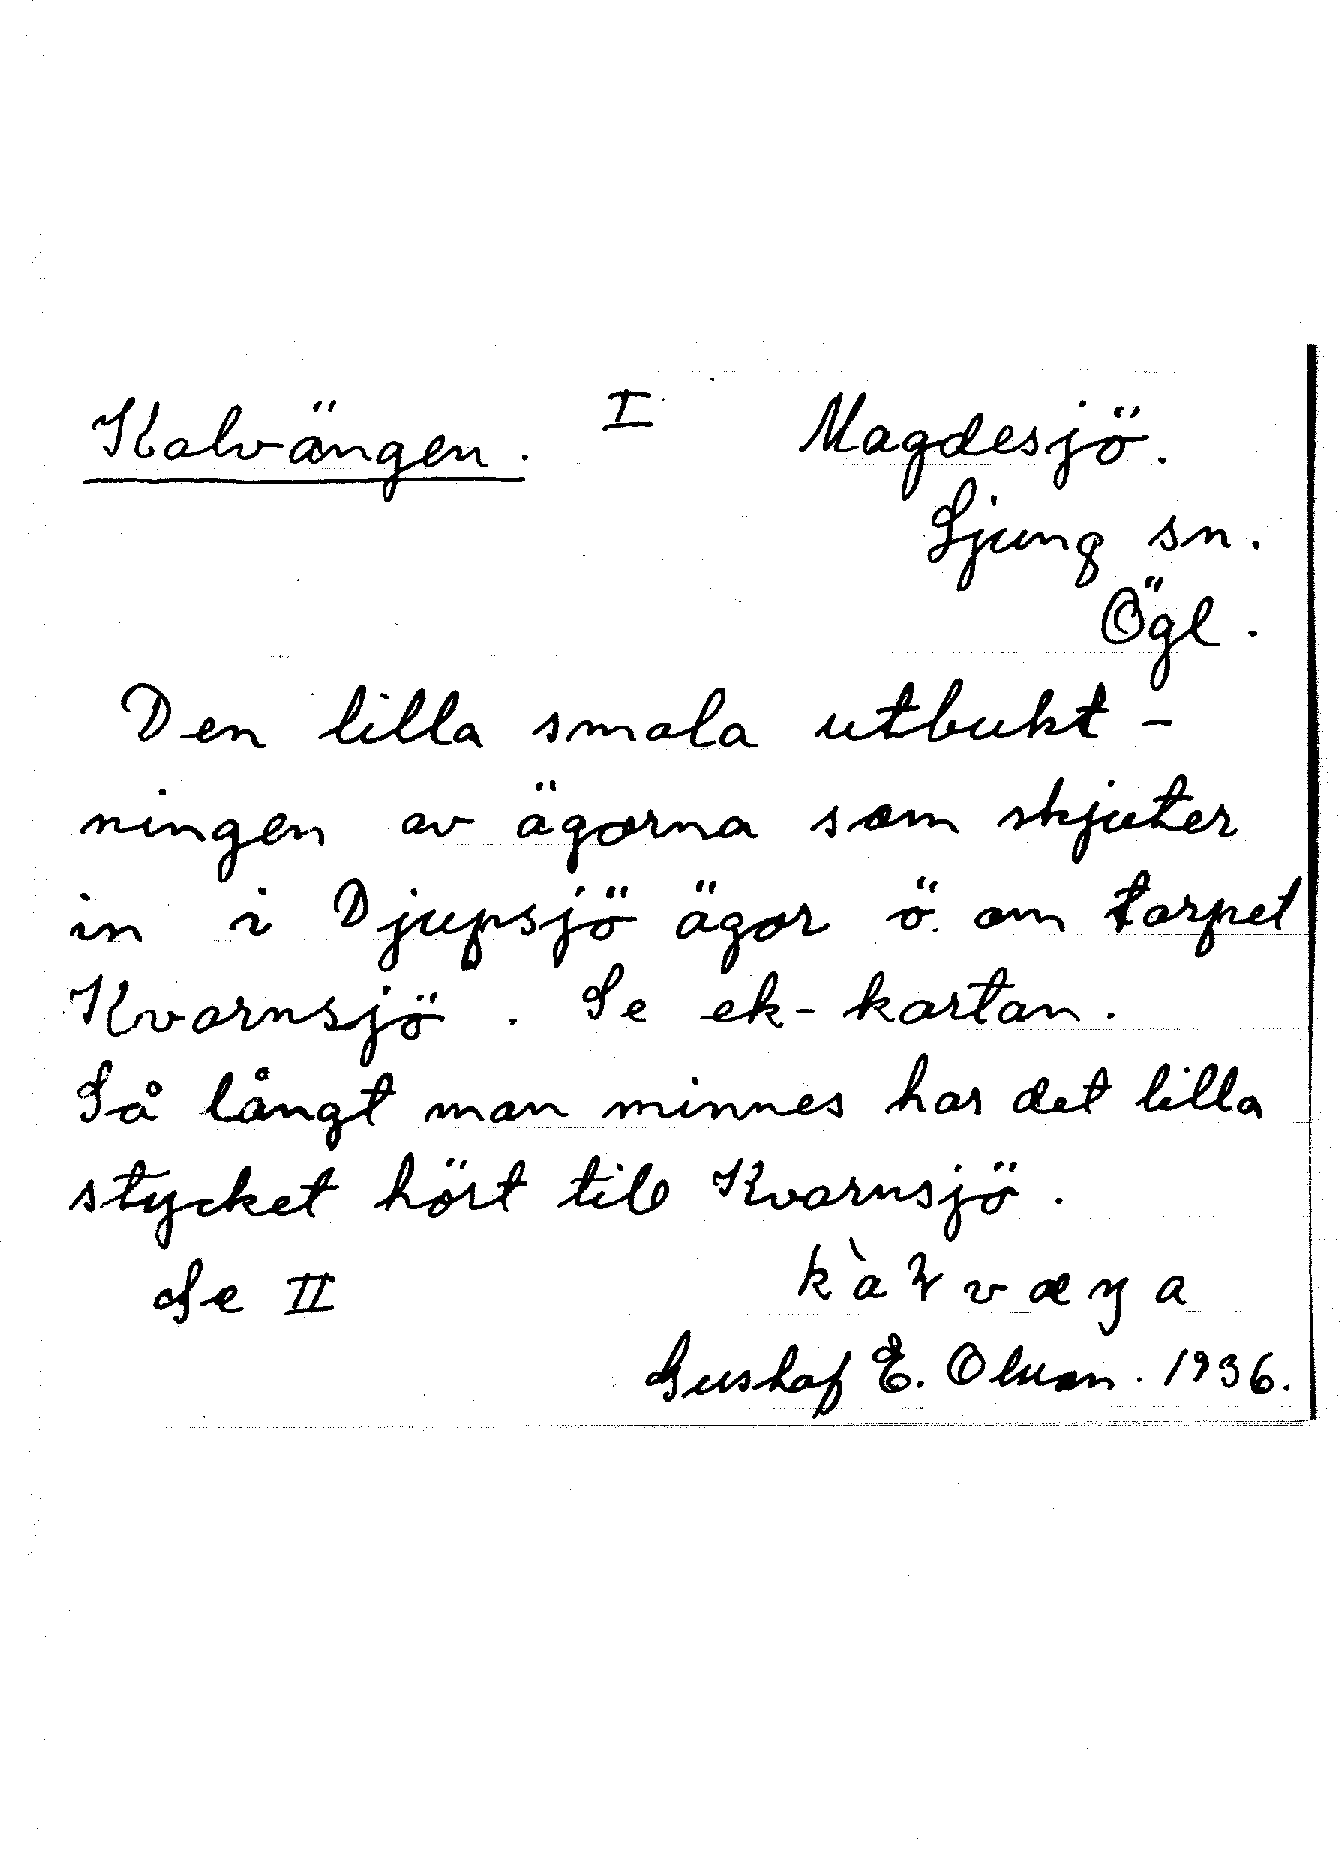 Kalvängen. I Magdesjö.
Ljung sn.
Ögl.
Den lilla smala utbukt-
ningen av ägorna som skjuter
in i Djupsjö ägor ö. om torpet
Kvarnsjö. Se ek-kartan.
Så långt man minnes har det lilla
stycket hört till Kvarnsjö.
Se II
Gustaf E. Olsson. 1936.